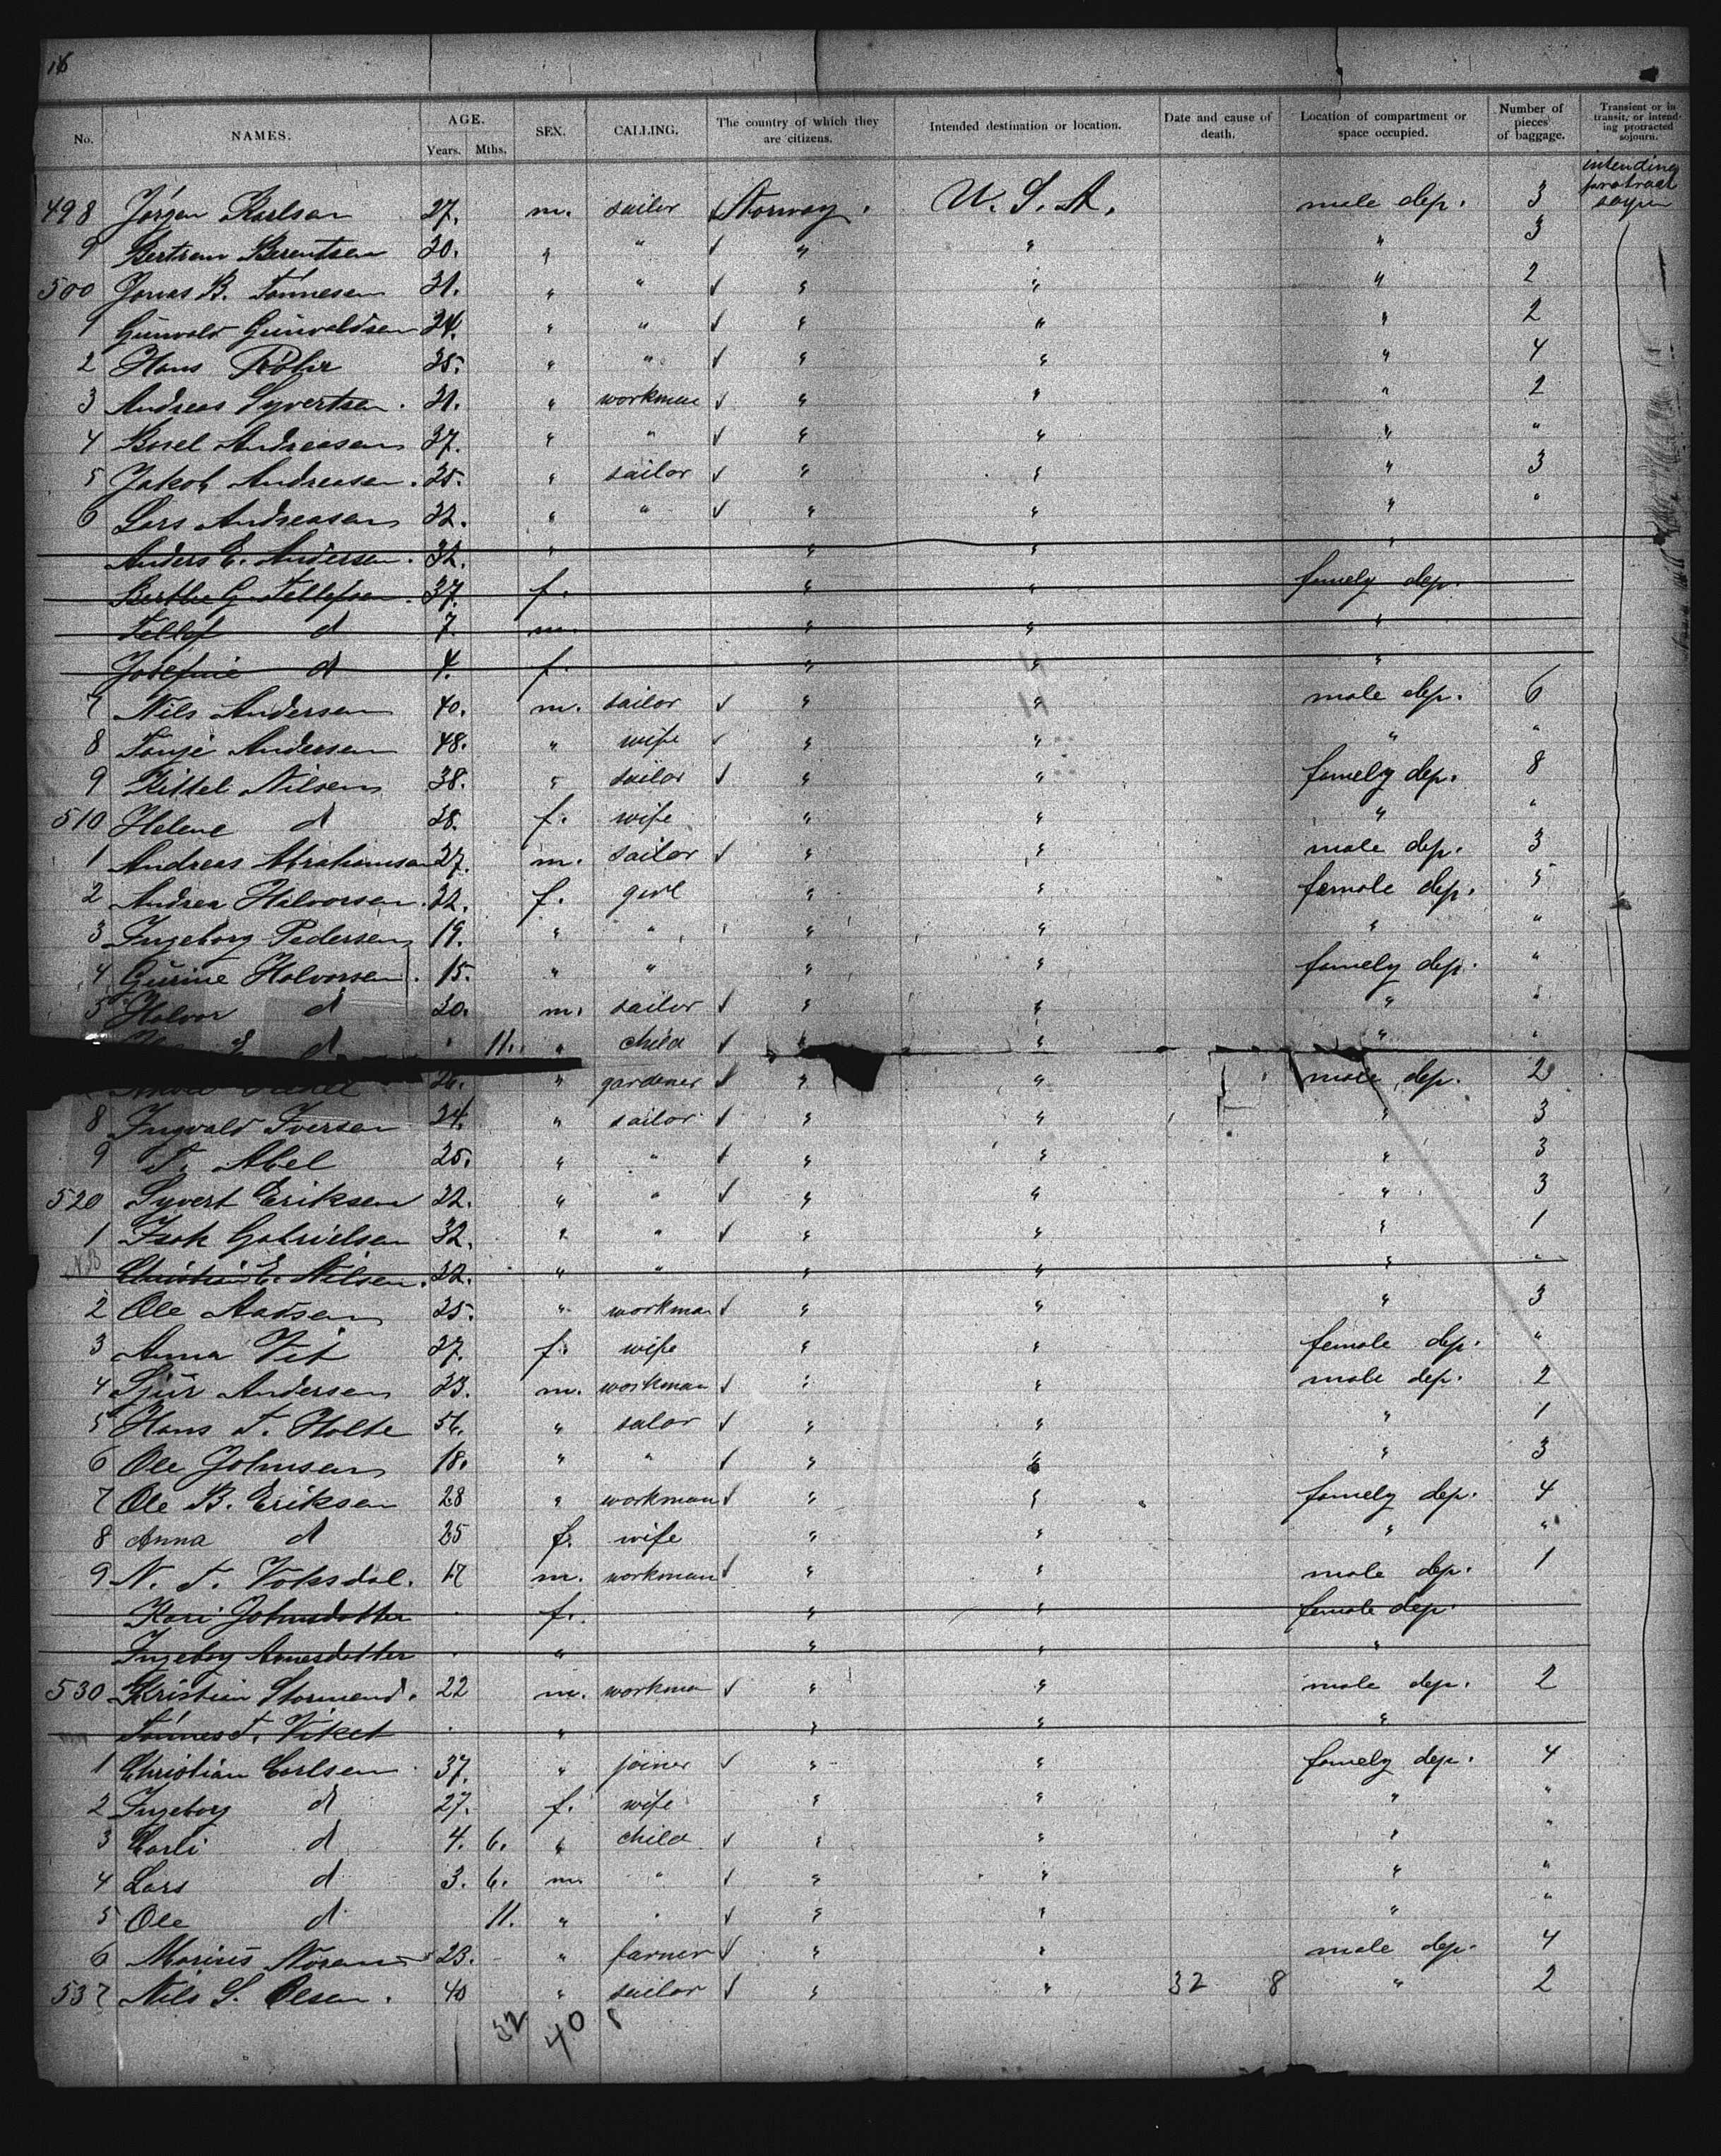 16
No. NAMES. AGE. Years. Mths. SEX. CALLING. The country of which they are citizens. Intended destination or location. Date and cause of death. Location of compartment or space occupied. Number of pieces of baggage. Transient or in transit, or intending protracted sojourn.
intending
498 Jørgen Karlsen 27. m. sailor Norway. U. S. A. male dep. 3
9 Bertram Berentsen 20. " " " " " 3
500 Jonas B. Tønnesen 21. " " " " " 2
1 Gunvald Gunvaldsen 24. " " " " " 2
2 Hans 25. " " " " " 4
3 Andreas Syvertsen. 21. " workman " " " 2
4 Andreasen 27. " " " " " "
5 Jakob Andreasen. 25. " sailor " " " 3
6 Lars Andreasen 22. " " " " " "
Anders E. Andersen. 32. " " " "
Berthe G. Tellefsen. 37. f. " " famely dep.
Tellef d 7. m. " " "
Josefine d 4. f. " " "
7 Nils Andersen 40. m. sailor " " male dep. 6
8 Andersen 48. " wife " " " "
9 Kittel Nilsen 38. " sailor " " famely dep. 8
510 Helene d 28. f. wife " " " "
1 Andreas Abrahamsen 27. m. sailor " " male dep. 3
2 Andrea Halvorsen. 22. f. girl " " female dep. 5
3 Ingeborg Pedersen 19. " " " " " "
4 Gurine Halvorsen. 15. " " " " famely dep. "
5 Halvor d 20. m. sailor " " " "
d 11. " child " " " "
26. " gardener " " male dep. 2
8 Ingvald Iversen 24. " sailor " " " 3
9 T. Abel 25. " " " " " 3
520 Syvert Eriksen 22. " " " " " 3
1 Isak Gabrielsen 32. " " " " " 1
Christian E. Nilsen. 22. " " " " " "
2 Ole Aadsen 25. " workman " " " 3
3 Anna 27. f. wife " " female dep. "
4 Sjur Andersen 23. m. workman " " male dep. 2
5 Hans T. Holte 56. " salor " " " 1
6 Ole Johnsen 18. " " " " " 3
7 Ole B. Eriksen 28 " workman " " famely dep. 4
8 Anna d 25 f. wife " " " "
9 N. T. Voksdal. 17 m. workman " " male dep. 1
Kari Johnsdatter f. " " female dep.
Ingeborg " " " "
530 Kristian 22 m. workman " " male dep. 2
Tønnes T. " " " "
1 Christian Carlsen 37. " joiner " " famely dep. 4
2 Ingeborg d 27. f. wife " " " "
3 Carli d 4. 6. " child " " " "
4 Lars d 3. 6. m. " " " " "
5 Ole d 11. " " " " " "
6 Marius 23. " farmer " " male dep. 4
537 Nils S. Olsen. 40 " sailor " " 32 8 " 2
32 40 8